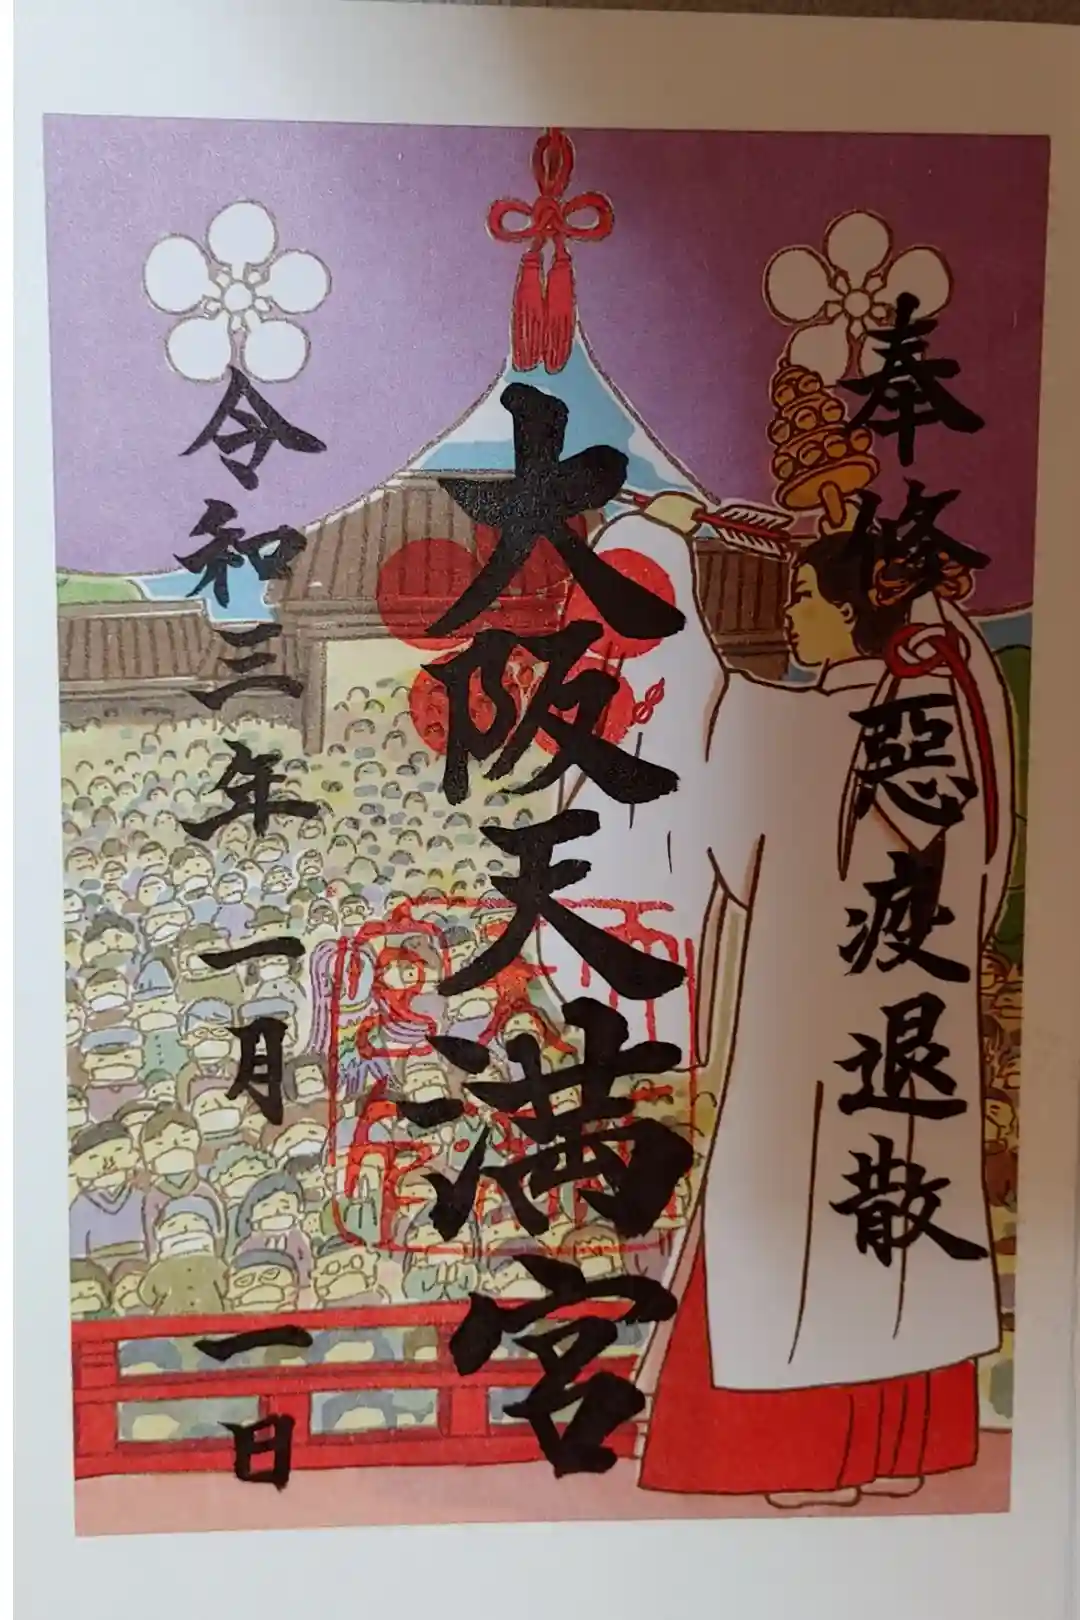 奉修惡疫退散
大阪天満宮
令和三年一月一日